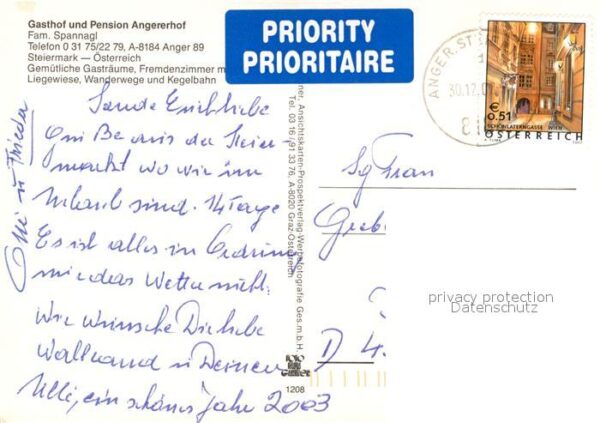 Gasthof und Pension Angererhof
Fam. Spannagl
Telefon 0 31 75/22 79, A-8184 Anger 89
Steiermark — Österreich
Gemütliche Gasträume, Fremdenzimmer m
Liegewiese, Wanderwege und Kegelbahn
PRIORITY
PRIORITAIRE
ANGER, ST
30.12.0
€
0.51
SCHÖNLATERNGASSE WIEN
ÖSTERREICH
liebe
aus der Steier
markt wo wir im
Urlaub sind. 14 Tage
Es ist alles in
das Wetter nicht.
Wir wünsche Dir liebe
Waltraud u Deinen
Ulli, ein schönes Jahr 2003
u Frieder
ner, Ansichtskarten-Prospektverlag-Werbefotografie Ges.m.b.H.
Tel. 0316/91 33 76, A-8020 Graz-Österreich
1208
Sg Frau
Greb
D 4
privacy protection
Datenschutz